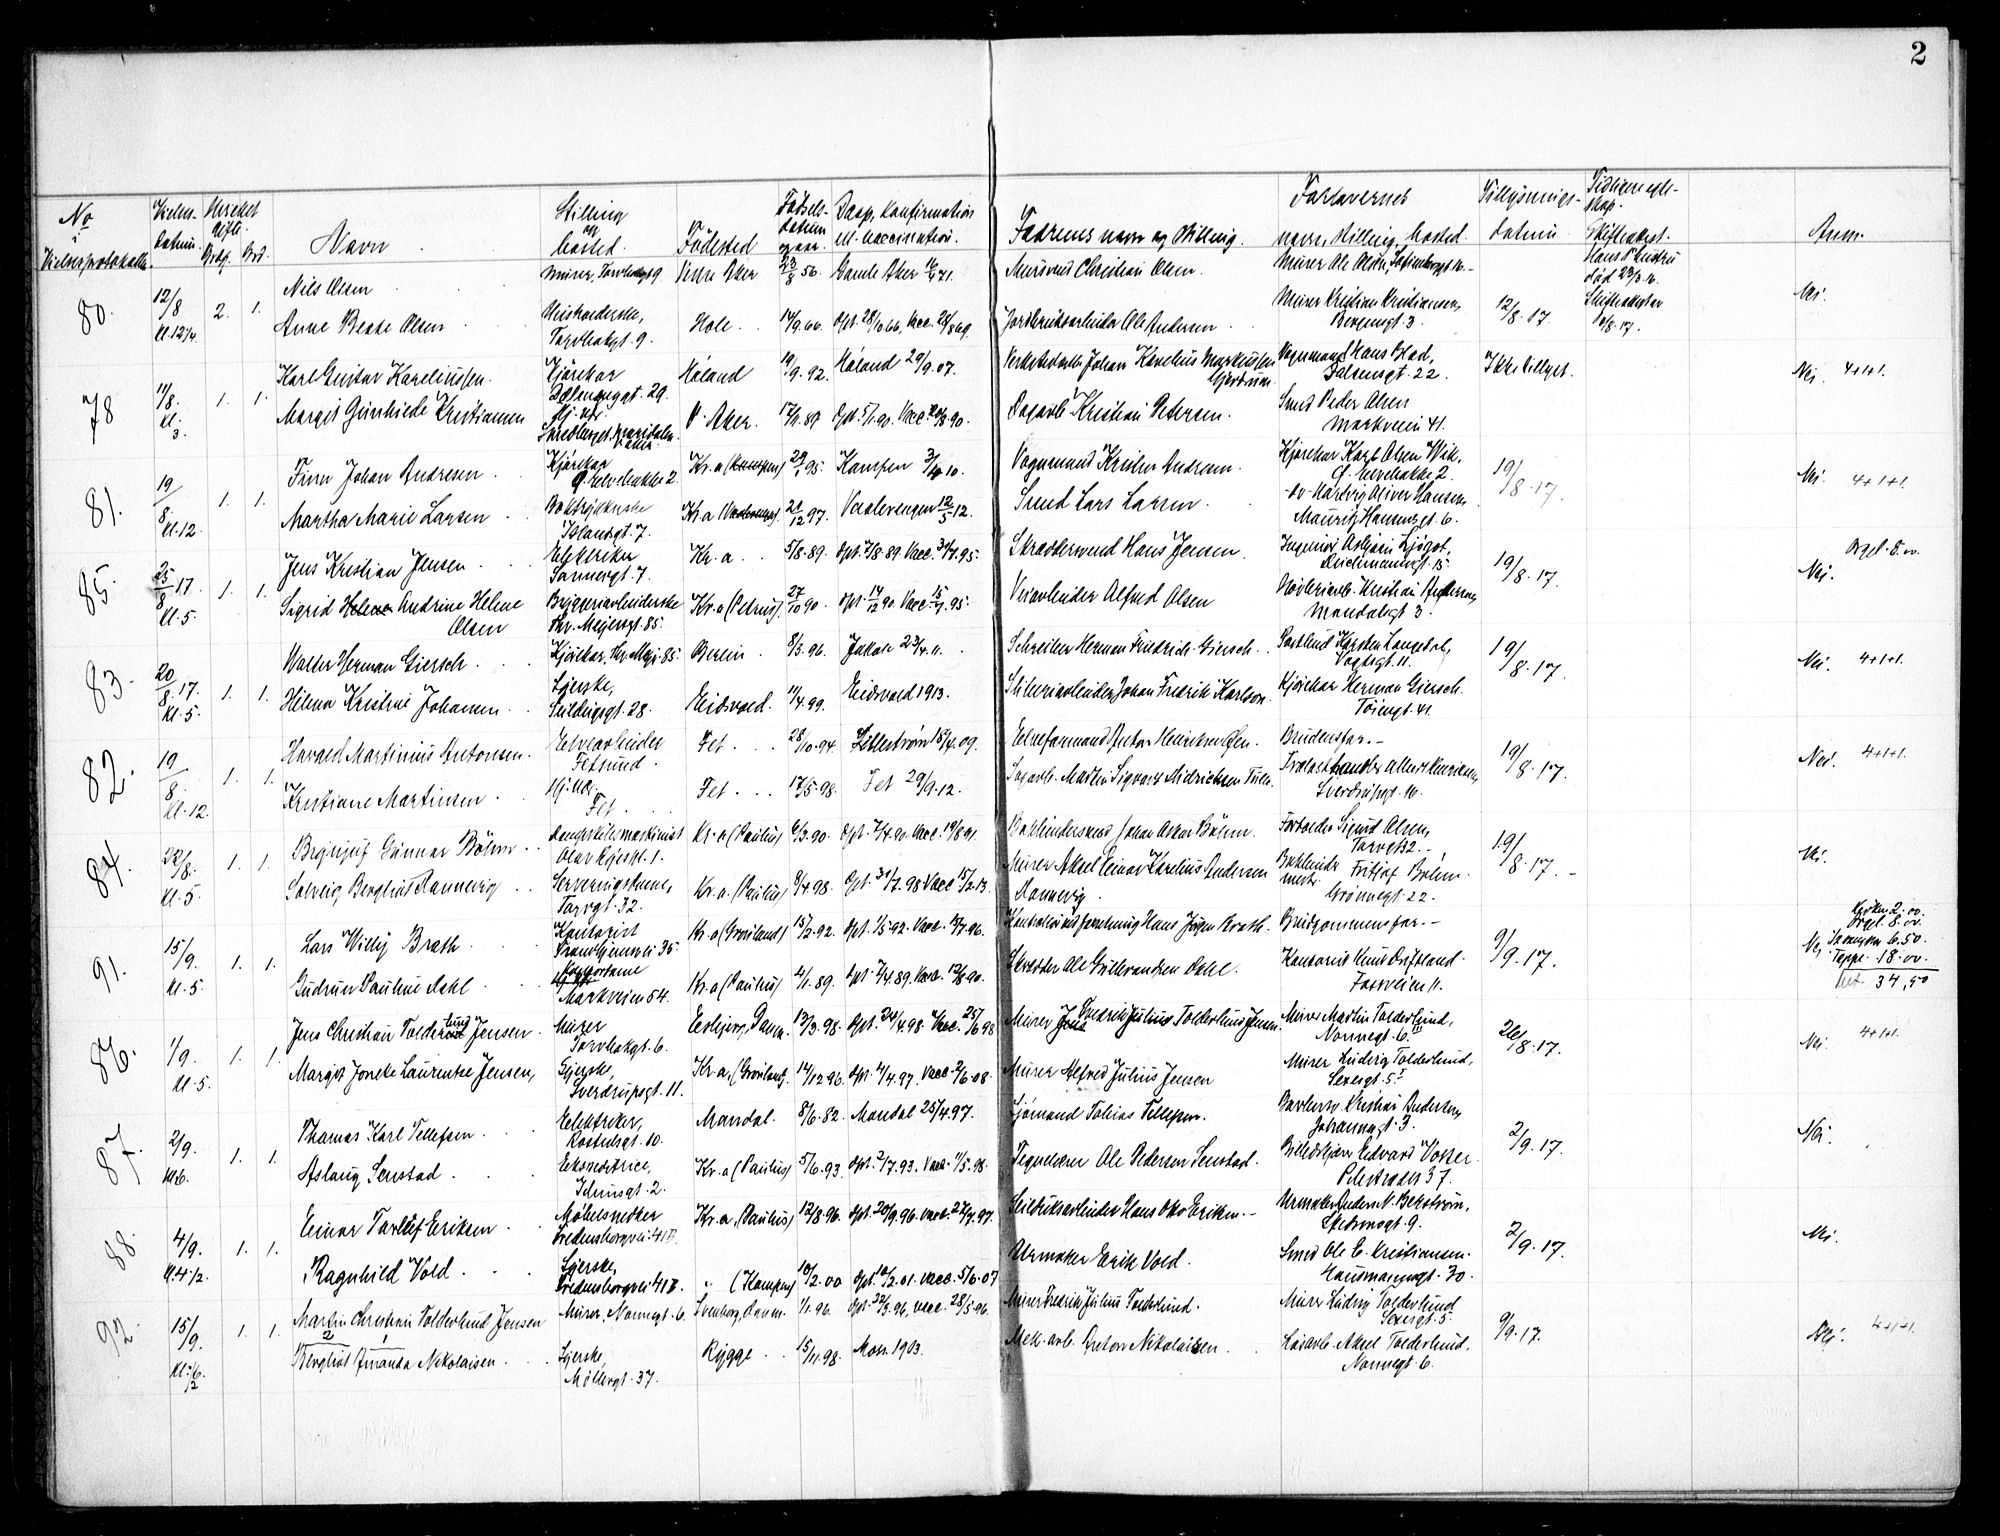 2
No i Vielsesprotokollen. Vielses-datum. Hvilket Ægtesk. Brdg. Brd. Navn Stilling og bosted. Fødested Fødsels-datum og aar. Daap, Konfirmation Vaccination. Fadrens navn og stilling. Forlovernes navn, stilling, bosted. Tillysnings-datum Tidligere egte-skap. Skifteakst. Anm.
80. 12/8 kl. 12 1/4 2. 1.
Nils Olsen Murer, Torvbakgt 9 Vestre Aker 23/8 56. Gamle Aker 71. Mursvend Christian Olsen. Murer Ole Olsen, Sofienberggt. 16.
Anne Beate Olsen Torvbakgt. 9. Hole 14/9.66. dpt. 28/10.66, Vacc. 28/8 69. Jordbruksarbeider Ole Andersen Murer Kristian Kristiansen, Bergensgt. 3. 12/8.17. død 23/3.16. Skifteakst av 10/8.17. Nei.
78 11/8. kl. 3. 1. 1.
Karl Gustav Kareliussen. Kjørekar Dælenenggt. 29. Høland 19/9.92. Høland 29/9.07. Johan Karelius Markussen Gjerdrum. Vognmand Hans Blad, Falsensgt. 22. Ikke tillyst. Nei. 4+1+1.
Margit Gunhilde Kristiansen Hj. vær. V. Aker. 17/11.89 Dpt. 5/1.90. Vacc. 20/8.90. Dagarb. Kristian Petersen. Smed Peder Olsen Markveien 41.
81. 19/8. kl. 12. 1. 1.
Finn Johan Andresen Kjørekar Kr.a (Kampen) 29/1 95. Kampen 3/4 10. Vognmand Andresen. Kjørekar Karl Olsen Wik, 19/8.17. Nei. 4+1+1.
Martha Marie Larsen Islandsgt. 7. Kr.a 21/12 97. Vaalerengen 12/5 12. Smed Lars Larsen Oliver Hansen, Mauritz Hansensgt. 6.
85. 25/8 17. kl. 5. 1. 1.
Jens Kristian Jensen Elektriker Sannergt. 7. Kr.a 5/8.89. dpt. 7/8.89. Vacc. 31/7.95. Skræddersvend Hans Jensen. Ingeniør Asbjørn Deichmannsgt. 15. 19/8.17. Nei. Orgel. 8.00
Sigrid Helene Andrine Helene Olsen Bryggeriarbeiderske Thv. Meyersgt. 85. Kr.a (Petrus). 27/10 90. dpt. 14/12 90. Vacc. 15/7.95. Veiarbeider Alfred Olsen Kristian Andersen, Mandalsgt. 3.
83. 20/8.17. kl. 5. 1. 1.
Walter Herman Giersch Kjørekar, Thv. Mey. 85. Berlin 8/3.96. Jakob 23/4.11. Schreiber Herman Friedrich Giersch Postbud Karsten Langedal, Vogtsgt. 11. 19/8.17. Nei. 4+1+1.
Helena Kristine Johansen Syerske, Seilduksgt. 28. Eidsvold. 11/4.99. Eidsvold 1913. Johan Fredrik Karlson. Kjørekar Herman Giersch. Tøiengt. 41.
82. 19/8. kl. 12. 1. 1.
Harald Martinius Antonsen Elvearbeider Fetsund. Fet 28/10.94. Lillestrøm 18/4.09. Elveformand Anton Henriksen Øien. Brudens far. 19/8.17. Nei. 4+1+1.
Kristiane Martinsen Hj.vær. Fet Fet 17/5.98. Fet 29/9.12. Sagarb. Martin Sigvart Midriksen Sverdrupsgt. 16.
84. 22/8. kl. 5. 1. 1.
Brynjulf Gunnar Böhm Dampskibsmaskinist Olav Ryesgt. 1. Kr.a (Paulus) 6/3.90. Dpt. 7/4.90. Vacc. 19/8 91. Bokbindersvend Johan Oskar Böhm. Forbolder Sigurd Olsen, Torvgt. 32. 19/8.17. Nei.
Solveig Bergljot Rannevig Serveringsdame, Torvgt. 32. Kr.a. (Paulus) 8/4.98. Dpt. 31/7.98 Vacc 15/2.13. Murer Aksel Einar Karelius Andersen Rannevig. Bokbinder-mester Fritjof Böhm. Grønnegt. 22.
91. 15/9. kl. 5. 1. 1.
Lars Willy Brath Kontorist Trondhjemsvei 35. Kr.a (Grønland) 15/2.92. Dpt. 1/5.92. Vacc. 96. Hans Jørgen Brath. Brudgommens far. 9/9.17. Nei. Kirken 2.00. Orgel. 8.00. 6.50. Teppe. 18.00. 34,50
Gudrun Pauline Dahl Kontordame Markveien 54. Kr.a (Paulus) 4/1.89. dpt 7/4.89. Vacc. 12/8 90. Skrædder Ole Dahl. Fossveien 11.
86. 1/9. kl. 5. 1. 1.
Jens Christian Tolderlund Jensen Murer Torvbakgt. 6. Esbjerg, Danm. 12/3.98. Dpt. 24/4.98. Vacc. 25/6 98 Murer Fredrik Julius Tolderlund Jensen. Murer Martin Tolderlund, Nonnegt. 6. 26/8.17. Nei. 4+1+1.
Margit Joneke Laurentze Jensen, Syerske, Sverdrupsgt. 11. Kr.a, (Grønland). 14/12 96. dpt. 4/4.97. Vacc. 2/6.08. Murer Alfred Julius Jensen Murer Ludvig Tolderlund, Sexesgt. 5.
87. 2/9. kl. 6. 1. 1.
Thomas Karl Tellefsen Elektriker, Rostedsgt. 10. Mandal. 8/6.82. Mandal 25/4.97. Sjømand Tobias Tellefsen. Kristian Andersen, Johannesgt. 3. 2/9.17. Nei.
Aslaug Senstad Ekspeditrice, Idunsgt. 2. Kr.a (Paulus) 5/6.93. dpt. 2/7.93. Vacc. 11/5.98. Ole Pedersen Senstad. Edvard Vosser Pilestrædet 37.
88. 4/9. kl. 4 1/2. 1. 1.
Einar Torleif Eriksen Møbelsnedker Fredensborgvei. 41 B. Kr.a, (Paulus) 12/8.96. dpt. 20/9.96. vacc. 27/9.97. Seilduksarbeider Hans Oko Eriksen Urmaker Anders N. Bekstrøm, 2/9.17. Nei.
Ragnhild Vold Syerske, Fredensborgvei 41 B. " (Kampen) 10/2.00 dpt. 18/2.01. vacc. 5/6.07 Urmaker Erik Vold. Smed Ole E. Kristiansen. Hausmannsgt. 30.
92. 15/9. kl. 1/2 6. 1. 1.
Martin Christian Tolderlund Jensen Murer, Nonnegt. 6. Svenborg, Danm. 1/1.96. Dpt. 22/3.96, vacc. 28/5.96. Murer Fredrik Julius Tolderlund. Murer Ludvig Tolderlund Sexesgt. 5. 9/9.17. Nei. 4+1+1.
Bergliot Amanda Nikolaisen Syerske, Møllergt. 37. Rygge 15/11.98. Moss 1903. Mek. arb. Anton Nikolaisen Aksel Tolderlund, Nonnegt. 6.